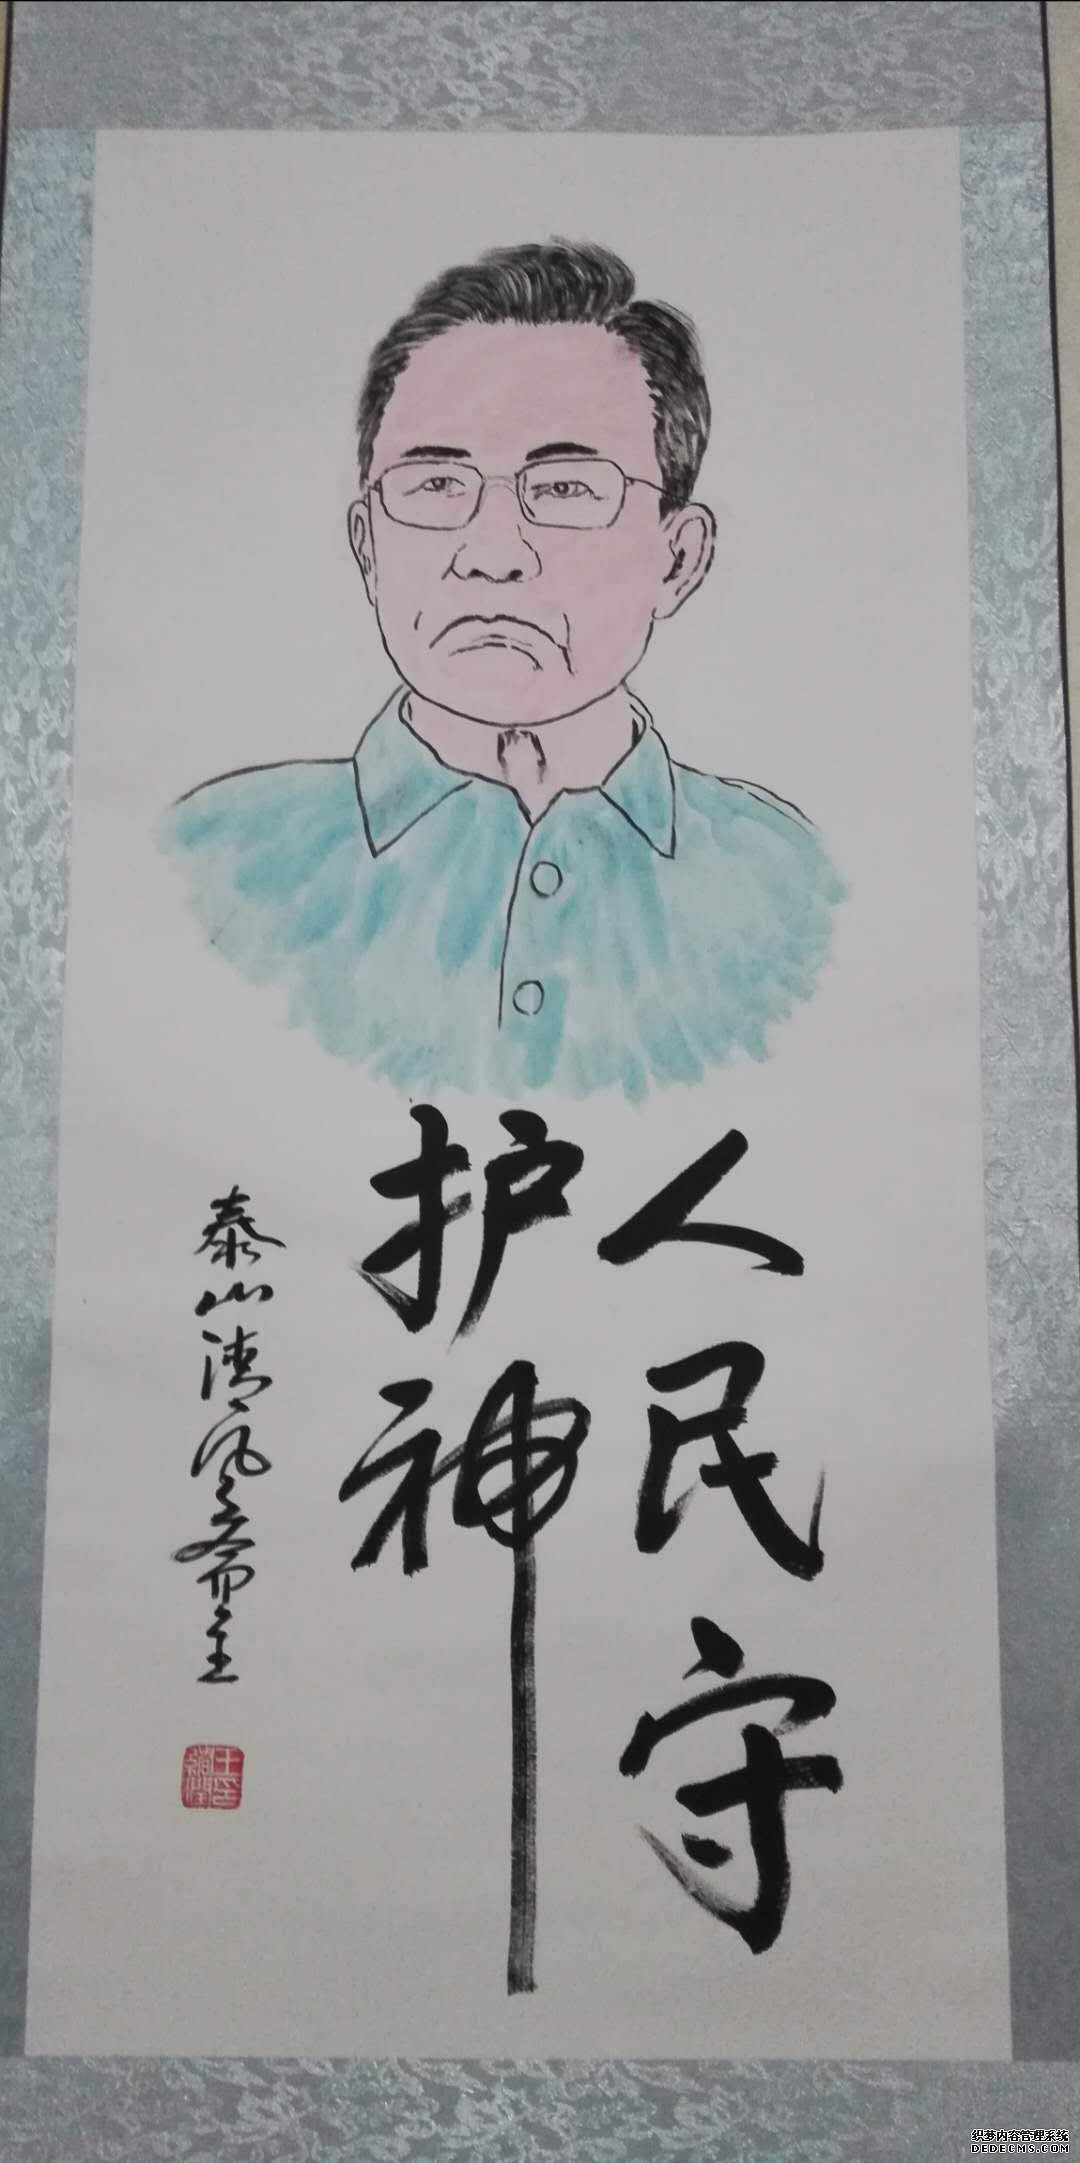 人民守
护神
泰山清风斋主
织梦内容管理系统
DEDECMS.COM